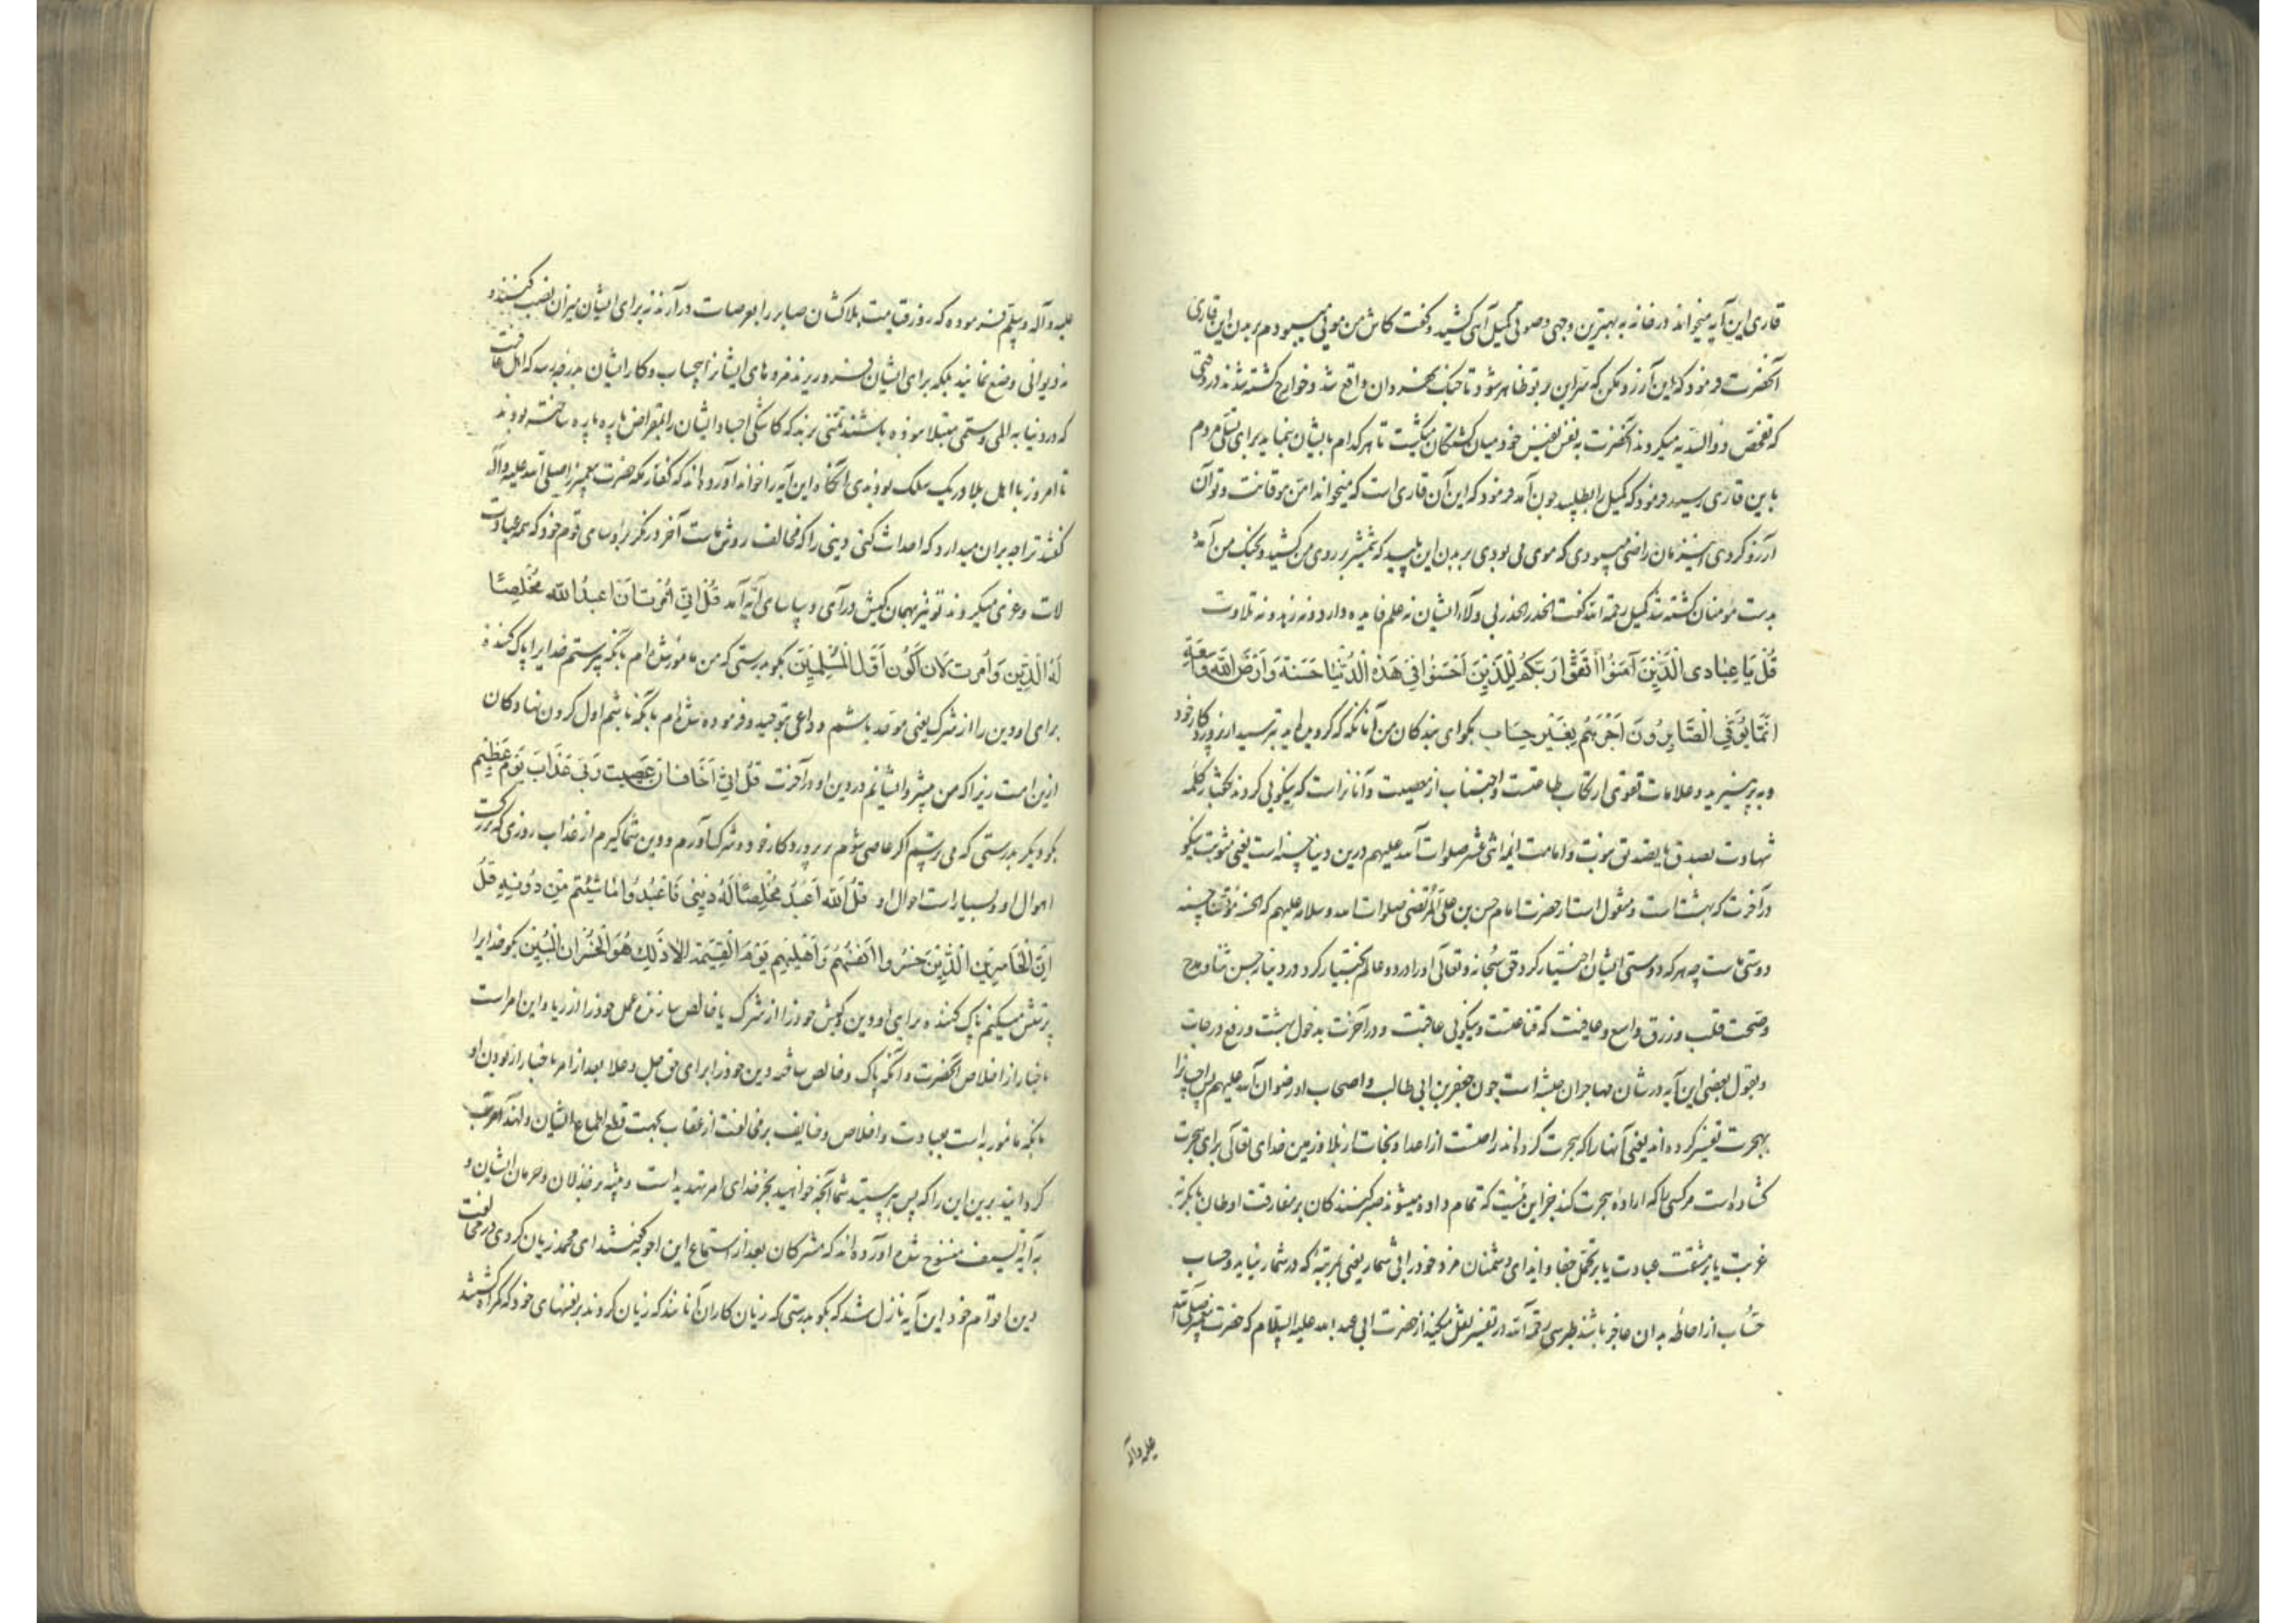 قاری این آیه میخواند در خانه به بهترین وجهی و صوتی کمیل آهی کشید و گفت کاش من مویی میبودم بر بدن این قاری
آنحضرت فرمود که این آرزو مکن که سر این بر تو ظاهر شود تا جنگ نهروان واقع شد و خوارج کشته شدند در وقتی
که تفحص ذو الثدیه میکردند آنحضرت به نفس نفیس خود میان کشتگان میگشت تا هر کدام بایشان بنماید برای تسلی مردم
باین قاری رسید فرمود که کمیل را بطلبید چون آمد فرمود که این آن قاری است که میخواند امن هو قانت و تو آن
آرزو کردی این زمان راضی میبودی که موی می بودی بر بدن این پلید که شمشیر بر روی من کشید و بجنگ من آمد و
بدست مومنان کشته شد کمیل رحمه الله گفت الحذر الحذر بی ولاء ایشان نه علم فایده دارد و نه زهد و نه تلاوت
قُلْ یَا عِبَادِی الَّذِینَ آمَنُوا اتَّقُوا رَبَّکُمْ لِلَّذِینَ اَحْسَنُوا فِی هَذِهِ الدُّنْیَا حَسَنَة وَاَرْضُ اللّٰهِ وَاسِعَة
اِنَّمَا یُوَفَّی الصَّابِرُونَ اَجْرَهُم بِغَیْرِ حِسَاب بگو ای بندکان من آنانکه که گرویده اید بترسید از پروردکار خود
و بپرهیزید و علامات تقوی ارتکاب طاعتست و اجتناب از معصیت و آنانراست که نیکویی کردند بگفتار کلمه
شهادت بصدق یا بصدق نبوت و امامت ائمه اثنی عشر صلوات الله علیهم درین دنیا حسنه است یعنی مثوبت نیکو
در آخرت که بهشت است و منقول است از حضرت امام حسن بن علی المرتضی صلوات الله و سلامه علیهم که حسنه
دوستی ماست چه هر که دوستی ایشان اختیار کرد حق سبحانه و تعالی او را در دو عالم اختیار کرد در دنیا بحسن ثنا و مدح
و صحت قلب و رزق واسع و عافیت که قناعتست و نیکویی عاقبت و در آخرت بدخول بهشت و رفع درجات
و بقول بعضی این آیه در شان مهاجران حبشه است چون جعفر بن ابی طالب و اصحاب او رضوان الله علیهم پس احسانرا
بهجرت تفسیر کرده اند یعنی آنها را که هجرت کرده اند راحتست از اعدا و نجات از بلا و زمین خدای تعالی برای هجرت
کشاده است هر کسی را که اراده هجرت کند جز این نیست که تمام داده میشوند صبر کنندکان بر مفارقت اوطان یا بکربت
غربت یا بر مشقت عبادت یا بر تحمل جفا و ایذای دشمنان مزد خود را بی شمار یعنی بمرتبه که در شمار نیاید و حساب
حسّاب از احاطه بدان عاجز باشند طبرسی رحمه الله در تفسیر نقل میکند از حضرت ابی عبد الله علیه السلام که حضرت پیغمبر صلی الله
علیه و آله
علیه و آله و سلم فرموده که روز قیامت بلاکشان صابر را بعرصات در آرند نه برای ایشان میزان نصب کنند و
نه دیوانی وضع نمایند بلکه برای ایشان فرو ریزند مزدهای ایشانرا بیحساب و کار ایشان بدرجه رسد که اهل عافیت
که در دنیا به المی و ستمی مبتلا نبوده باشند تمنی برند که کاشکی اجساد ایشان را بمقراض پاره پاره ساخته بودند
تا امروز با اهل بلا در یک سلک بودندی آنگاه این آیه را خواند آورده اند که کفار مکه حضرت پیغمبر را صلی الله علیه و آله
گفتند ترا چه بر آن میدارد که احداث کنی دینی را که مخالف روش ماست آخر در نگر برؤسای قوم خود که همه عبادت
لات و عزی میکردند تو نیز بهمان کیش درآی و بیاسای آیه آمد قُلْ اِنِّی اُمِرْتُ اَنْ اَعْبُدَ اللّٰه مُخْلِصًا
لَهُ الدِّین وَاُمِرْت لِاَنْ اَکُونَ اَوَّلَ الْمُسْلِمِینَ بگو بدرستی که من مامور شده ام بآنکه پرستم خدایرا پاک کننده
برای او دین را از شرک یعنی موحد باشم و داعی بتوحید و فرموده شده ام بآنکه باشم اول گردن نهادکان
ازین امت زیرا که من پیشوا ایشانم در دین او و در آخرت قُلْ اِنِّی اَخَافُ اِنْ عَصَیْت رَبِّی عَذَابَ یَوْم عَظِیم
بگو دیگر بدرستی که می ترسم اگر عاصی شوم بر پروردکار خود و شرک آورم و دین شما گیرم از عذاب روزی که بزرگست
اهوال او و بسیار است احوال او قُلِ اللّٰه اَعْبُدُ مُخْلِصًا لَهُ دِینِی فَاعْبُدُوا مَا شِئْتُم مِن دُونِهِ قُلْ
اِنَّ الْخَاسِرِینَ الَّذِینَ خَسِرُوا اَنْفُسَهُم وَاَهْلِیهِم یَوْمَ الْقِیٰمَة اَلَا ذَلِکَ هُوَ الْخُسْرَانُ الْمُبِین بگو خدایرا
پرستش میکنم پاک کننده برای او دین و کیش خود را از شرک یا خالص سازنده عمل خود را از ریا و این امر است
باخبار از اخلاص آنحضرت و آنکه پاک و خالص ساخته دین خود را برای حق جل و علا بعد از امر باخبار از بودن او
بآنکه مامور به است بعبادت و اخلاص و خایف بر مخالفت از عقاب بجهت قطع اطماع ایشان و لهذا مترتب
گردانید برین این را که پس بپرستید شما آنچه خواهید بجز خدای امر تهدید است و مشعر بخذلان و حرمان ایشان و
به آیه سیف منسوخ شده آورده اند که مشرکان بعد از استماع این اجوبه گفتند ای محمد زیان کردی در مخالفت
دین اقوام خود این آیه نازل شد که بگو بدرستی که زیان کاران آنانند که زیان کردند بر نفسهای خود که گمراه کشتند